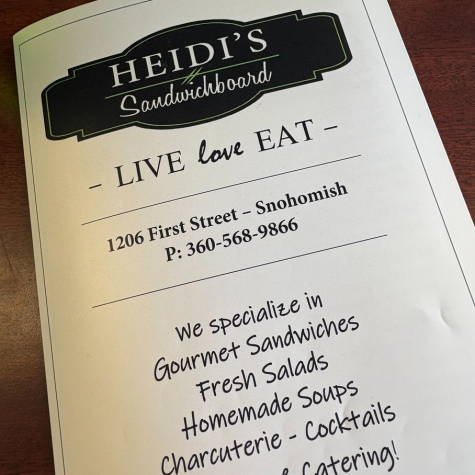 HEIDI'S
Sandwichboard
- LIVE love EAT -
1206 First Street – Snohomish
P: 360-568-9866
We specialize in
Gourmet Sandwiches
Fresh Salads
Homemade Soups
Charcuterie - Cocktails
Catering!